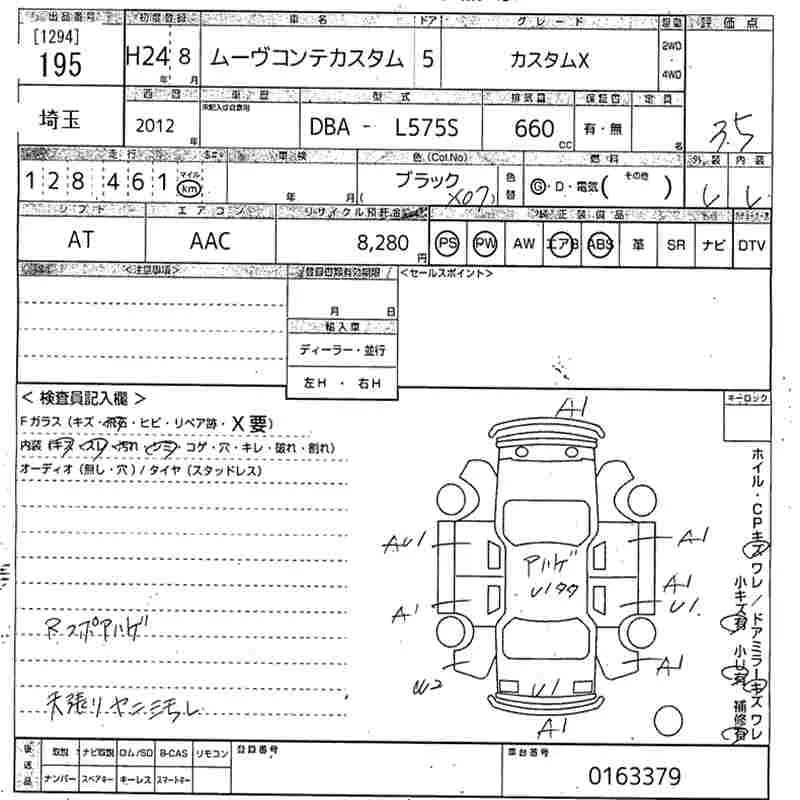 出品番号 初度登録 車名 ドア グレード 駆動 評価点
[1294]
195 H24 8 ムーヴコンテカスタム 5 カスタムX 2WD ・ 4WD 3.5
年 月
西暦 車歴 型式 排気量 保証書 定員
埼玉 2012 年 未記入は自家用 DBA - L575S 660 CC 有・無 名
走行 車検 色(Col.No) 燃料 外装 内装
128,461 マイル km 年 月 ブラック (X07) 色替 Ⓖ・D・電気( その他 )
シフト エアコン リサイクル預託金 純正装備品
AT AAC 8,280 円 PS PW AW エアB ABS 革 SR ナビ DTV
<注意事項> 登録書類有効期限 <セールスポイント>
月 日
輸入車
ディーラー・並行
左H ・ 右H
< 検査員記入欄 > キーロック
Fガラス (キズ・飛石・ヒビ・リペア跡・X要)
内装 (キズ・スレ・汚れ・シミ・コゲ・穴・キレ・破れ・割れ)
オーディオ (無し・穴) / タイヤ (スタッドレス)
A1
AU1 A1
Aハゲ
U1タタ
A1
U1
A1
RスポAハゲ
U2 A1
U1
天張りヤニシミ
A1
ホイル・CPキズワレ/ドアミラーキズワレ
小キズ有 小U有 補修有
後送品 取説 ナビ取説 ロム/SD B-CAS リモコン 登録番号 車台番号
ナンバー スペアキー キーレス スマートキー 0163379